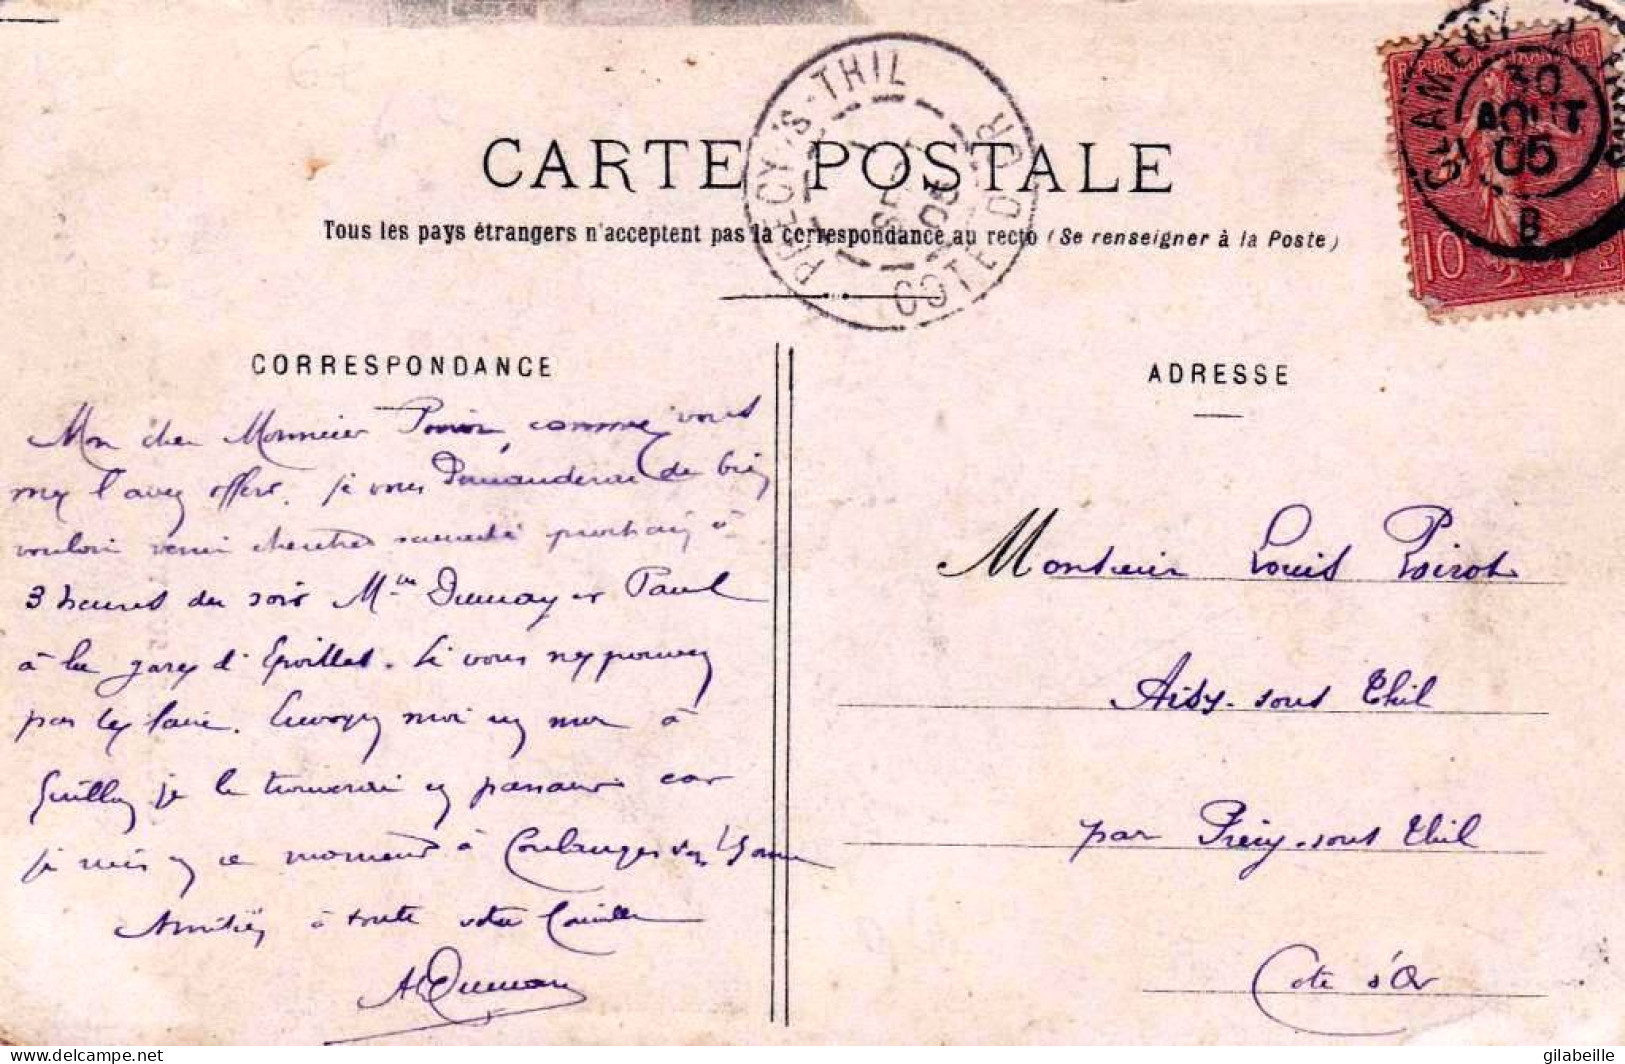 CARTE POSTALE
Tous les pays étrangers n'acceptent pas la correspondance au recto (Se renseigner à la Poste)
PRECY-S-THIL
COTE-D'OR
05
REPUBLIQUE FRANÇAISE
10
POSTES
CLAMECY A PARIS
30
AOUT
05
B
CORRESPONDANCE
Mon cher Monsieur Poirot, comme vous
me l'avez offert, je vous demanderai de bien
vouloir venir chercher samedi prochain à
3 heures du soir Mme Dumay et Paul
à la gare d'Epoisses. Si vous ne pouvez
pas le faire. Envoyez moi un mot à
Guillon je le trouverai en passant car
je suis en ce moment à Coulanges sur Yonne
Amitiés à toute votre famille
A Dumay
ADRESSE
Monsieur Louis Poirot
Aisy-sous Thil
par Précy-sous Thil
Cote d'Or
delcampe.net
gilabeille